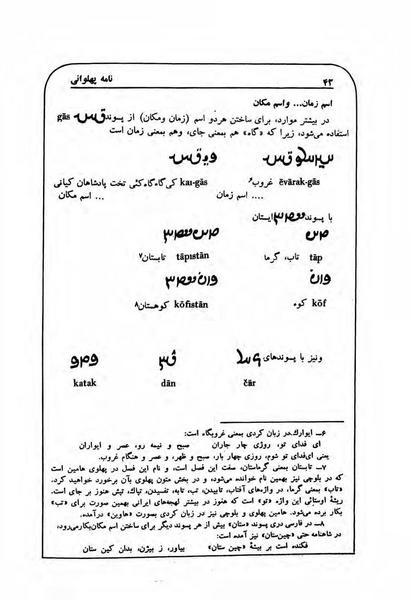 ۴۳ نامه پهلوانی
اسم زمان... و اسم مکان
در بیشتر موارد، برای ساختن هردو اسم (زمان ومکان) از پسوند gās
استفاده می‌شود، زیرا که «گاه» هم بمعنی جای، وهم بمعنی زمان است
ēvārak-gās غروب۶ kaı-gās کی‌گاه‌گاه‌کئی تخت پادشاهان کیانی
.... اسم زمان .... اسم مکان
با پسوند ایستان
tāp تاب، گرما tāpıstān تابستان۷
kōf کوه kōfıstān کوهستان۸
ونیز با پسوندهای
čār dān katak
۶ــ ایوارك، در زبان کردی بمعنی غروبگاه است:
ای فدای تو، روژی چار جاران صبح و نیمه رو، عصر و ایواران
یعنی ای‌فدای تو شوم، روزی چهار بار، صبح و ظهر، و عصر و هنگام غروب.
۷ــ تابستان بمعنی گرماستان، صفت این فصل است، و نام این فصل در پهلوی هامین است
که در بلوچی نیز بهمین نام خوانده می‌شود، و در بخش متون پهلوی بآن برخورد خواهید کرد.
«تاب» بمعنی گرما، در واژه‌های آفتاب، تابیدن، تب، تابه، تفسیدن، تپاك، تپش هنوز بر جای است.
ریشهٔ اوستائی این واژه «تو» است که هنوز در بیشتر لهجه‌های ایرانی بهمین صورت برای «تب»
بکار برده می‌شود. هامین پهلوی و بلوچی نیز در زبان کردی بصورت «هاوین» درآمده.
۸ــ در فارسی دری پسوند «ستان» بیش از هر پسوند دیگر برای ساختن اسم مکان‌بکارمی‌رود،
در شاهنامه حتی «چین‌ستان» نیز آمده است:
فکنده است بر بیشهٔ «چین ستان» بیاور، ز بیژن، بدان کین ستان